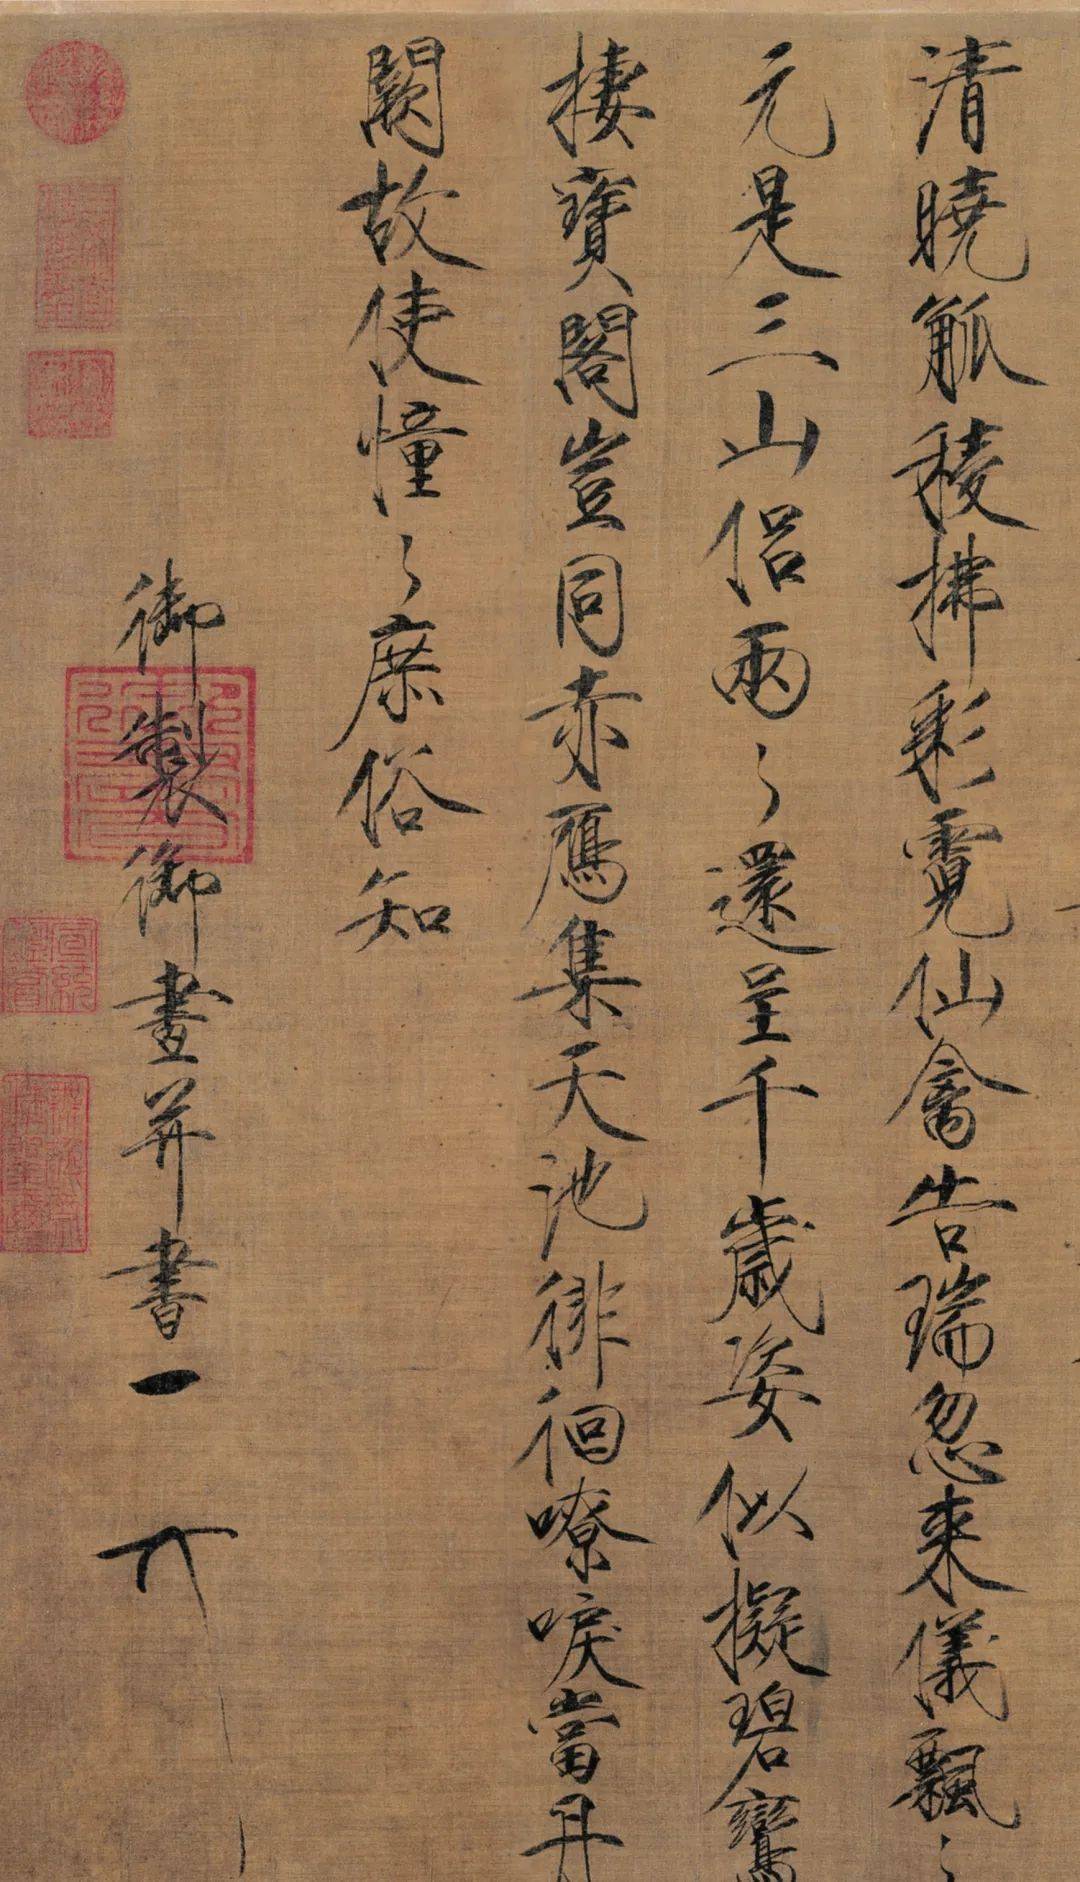 清曉觚稜拂彩霓仙禽告瑞忽来儀飄〻
元是三山侶兩〻還呈千歲姿似擬碧鸞
棲寶閣豈同赤鴈集天池徘徊嘹唳當丹
闕故使憧〻庶俗知
御製御畫并書